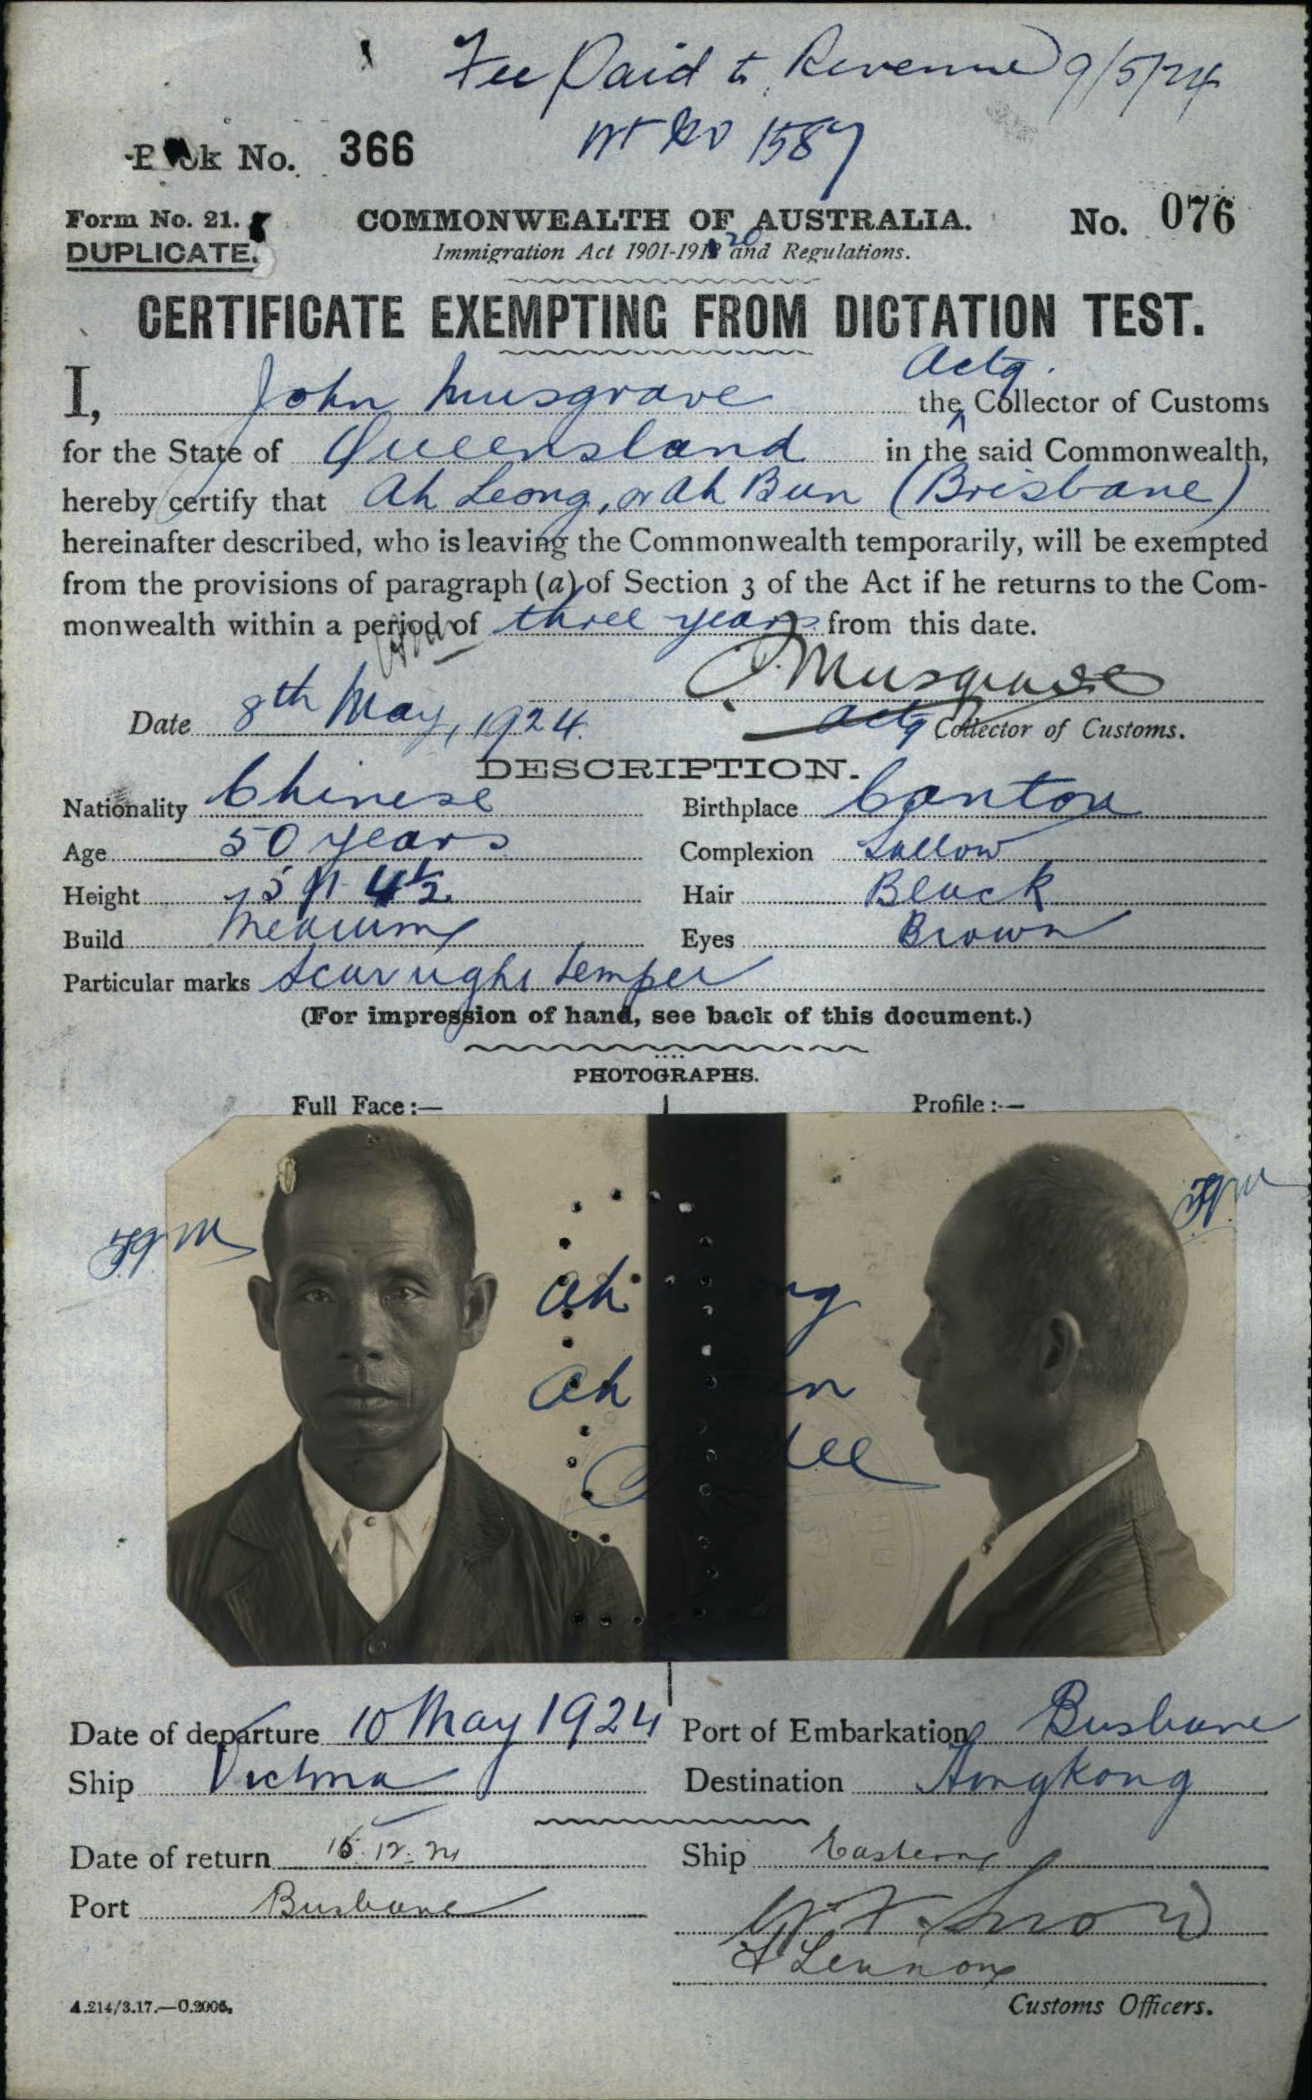 Fee Paid to Revenue 9/5/24
1587
Book No. 366
Form No. 21.
COMMONWEALTH OF AUSTRALIA.
No. 076
DUPLICATE.
Immigration Act 1901-1920 and Regulations.
CERTIFICATE EXEMPTING FROM DICTATION TEST.
Actg.
I, John Musgrave the Collector of Customs
for the State of Queensland in the said Commonwealth,
hereby certify that Ah Leong, or Ah Bun (Brisbane)
hereinafter described, who is leaving the Commonwealth temporarily, will be exempted
from the provisions of paragraph (a) of Section 3 of the Act if he returns to the Com-
monwealth within a period of three years from this date.
J. Musgrave
Date 8th May, 1924. Actg Collector of Customs.
DESCRIPTION.
Nationality Chinese Birthplace Canton
Age 50 years Complexion Sallow
Height 5 ft 4½ Hair Black
Build Medium Eyes Brown
Particular marks Scar right temper
(For impression of hand, see back of this document.)
PHOTOGRAPHS.
Full Face:— Profile:—
Ah ng
Ah n
Date of departure 10 May 1924 Port of Embarkation Brisbane
Ship Victoria Destination Hongkong
Date of return 15.12.24 Ship Eastern
Port Brisbane
Lennon
A.214/3.17.—C.2006.
Customs Officers.